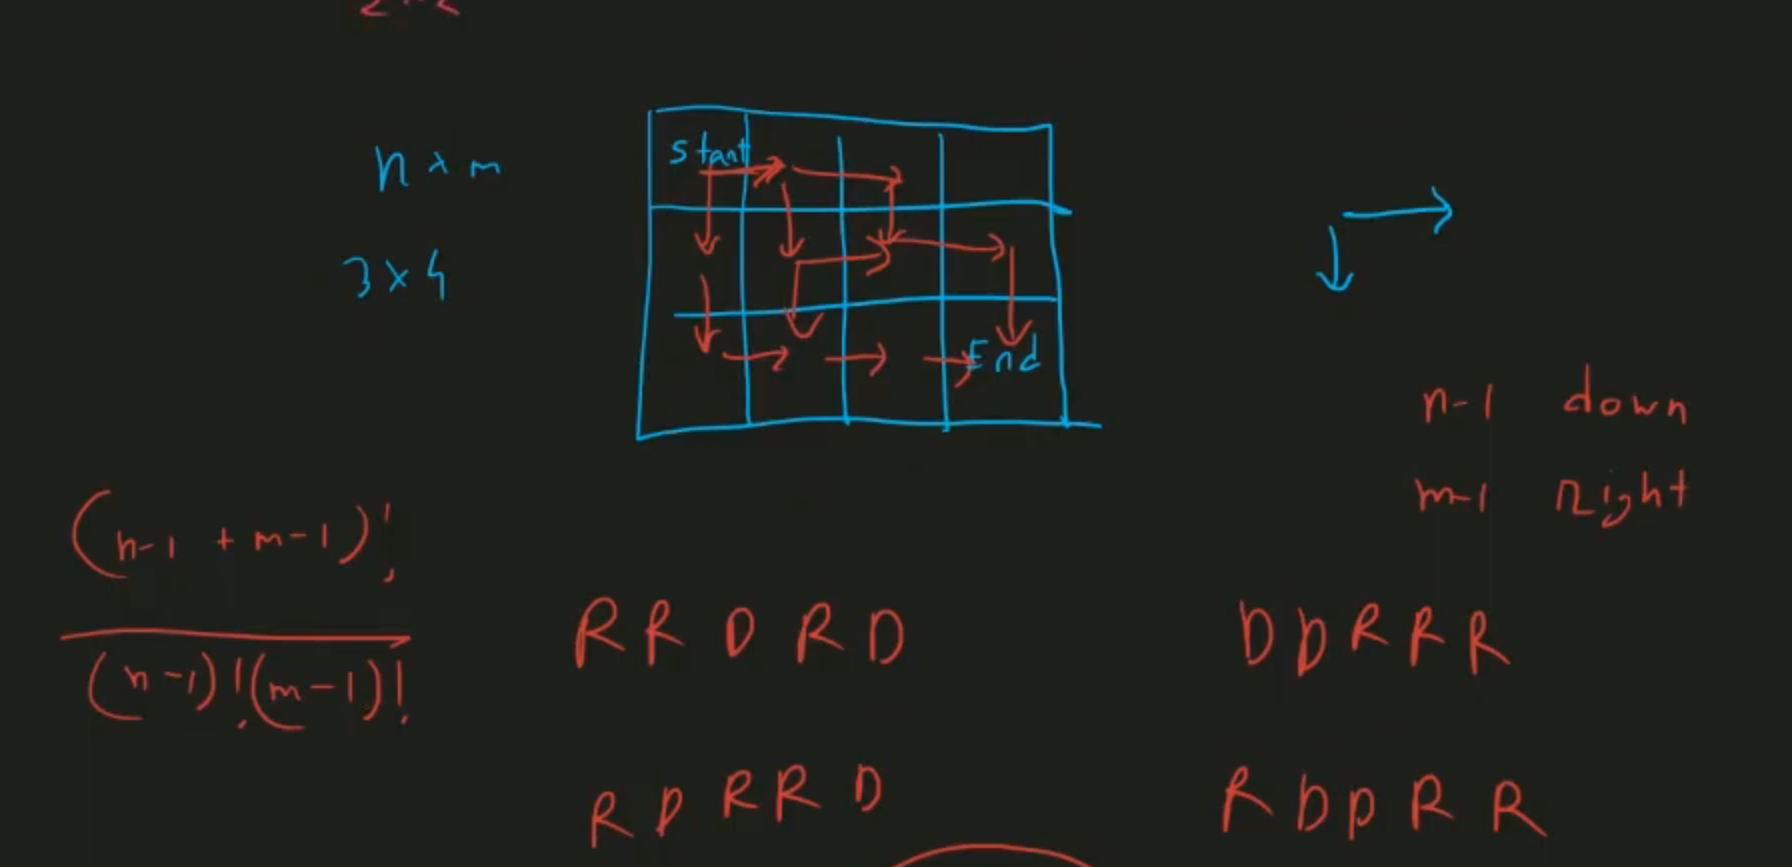 n × m
start
3 × 4
End
n-1 down
m-1 Right
(n-1 + m-1)!
(n-1)!(m-1)!
R R D R D
D D R R R
R D R R D
R D D R R